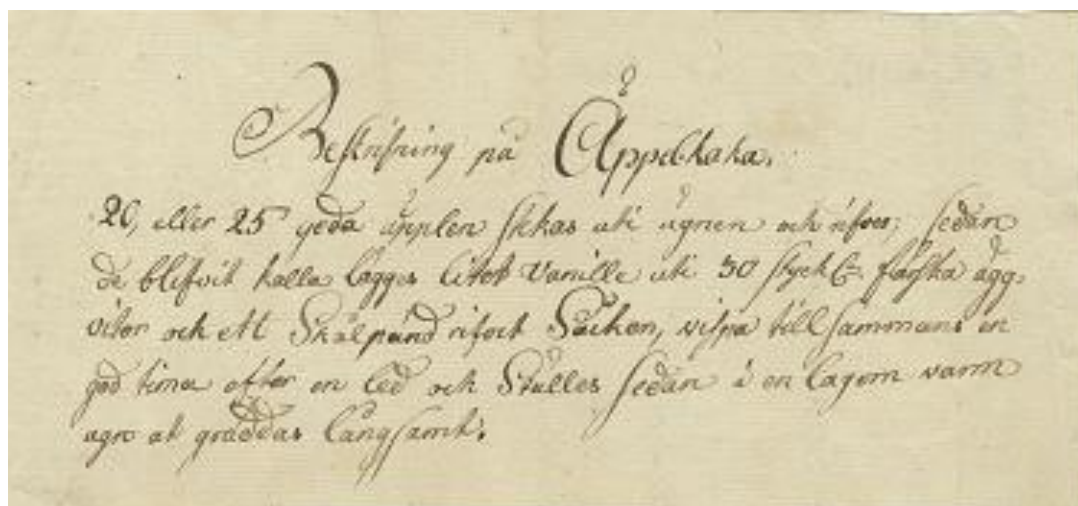 Beskrifning på Äppelkaka.
20, eller 25 goda äpplen stekas uti ugnen och rifves, sedan
de blifvit kalla lägges litet Vanille uti 30 styck färska ägg-
vitor och ett Skålpund rifvet Såcker, vispa till sammans en
god tima efter en led och Ställes sedan i en lagom varm
ugn at gräddas långsamt.